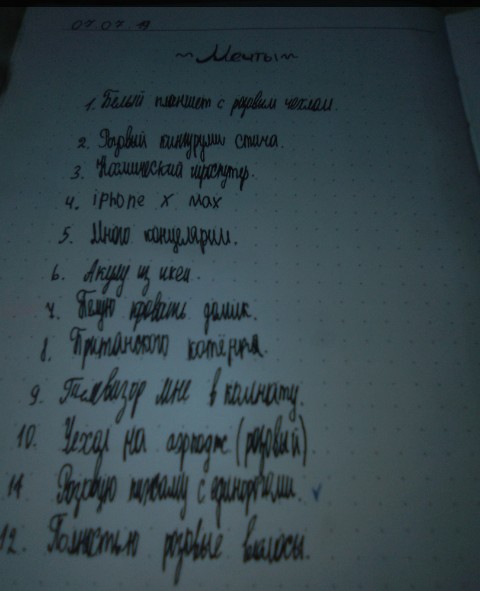 07.07.19
~Мечты~
1. Белый планшет с розовым чехлом.
2. Розовый кингуруми стича.
3. Космический гироскутер.
4. iPhone X Max
5. Много канцелярии.
6. Акулу из икеи.
7. Белую кровать домик.
8. Британского котёнка.
9. Телевизор мне в комнату.
10. Чехол на аэрподс (розовый)
11 Розовую пижаму с единорогами.
12. Полностью розовые волосы.